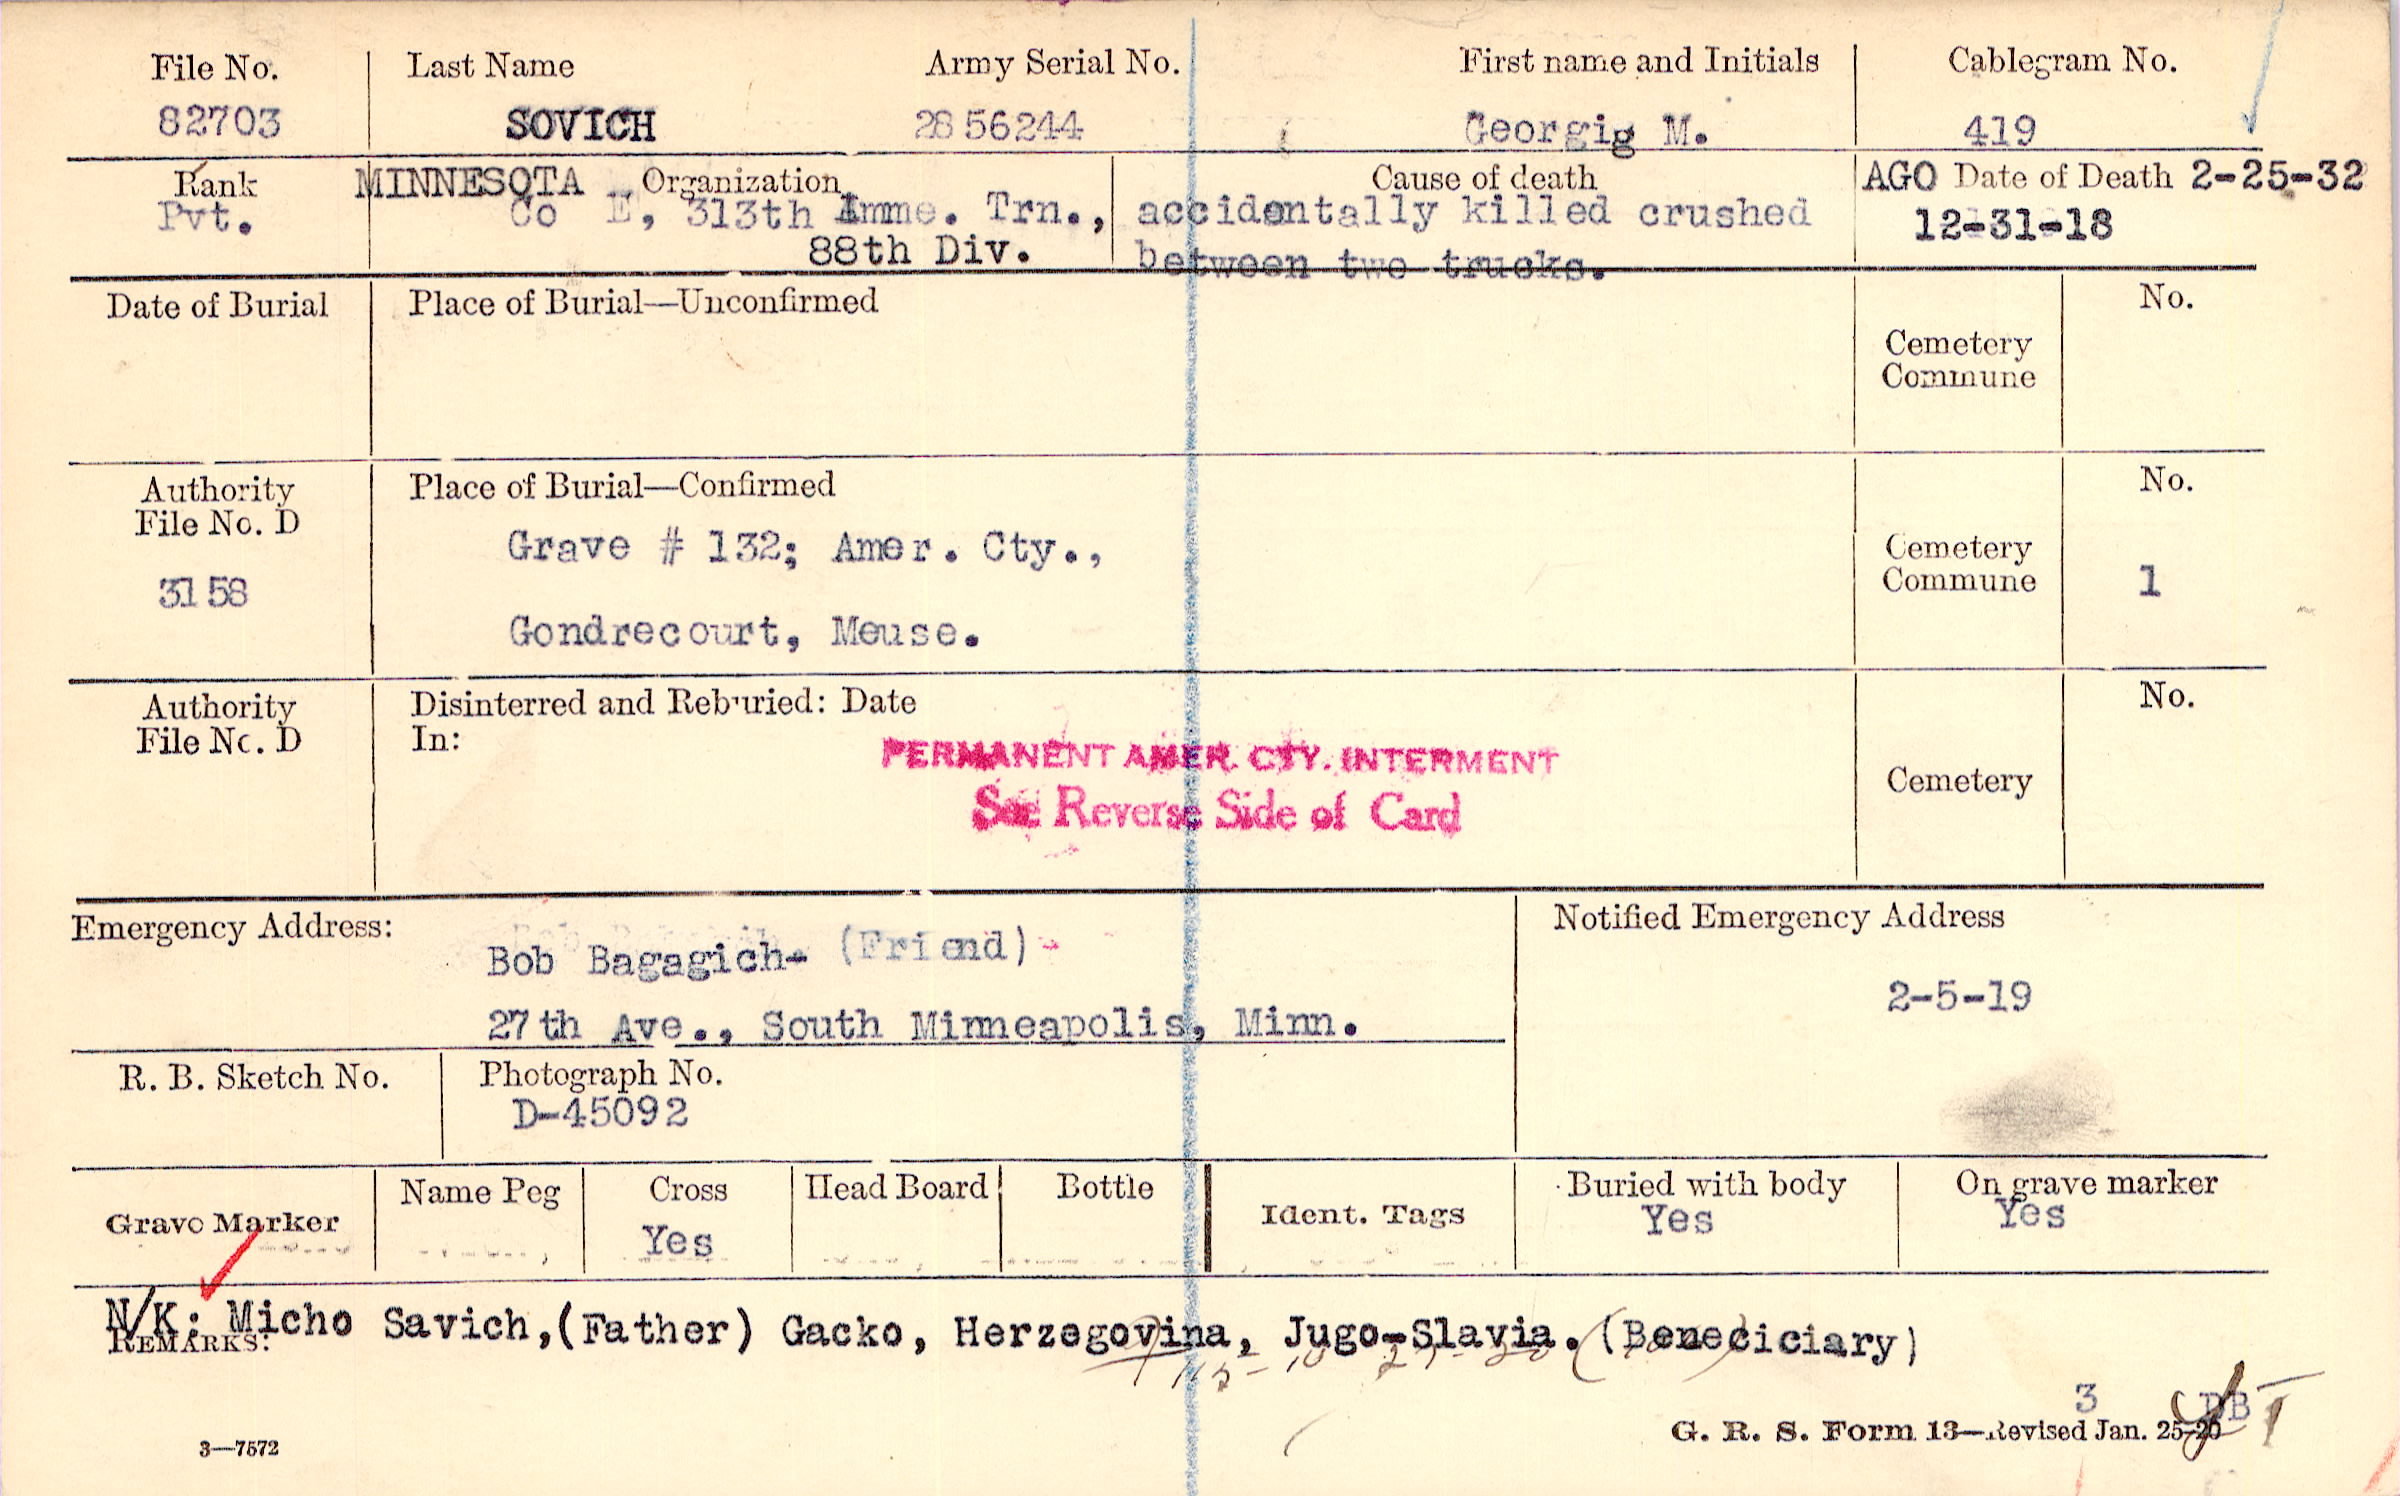 File No. Last Name Army Serial No. First name and Initials Cablegram No.
82703 SOVICH 2856244 Georgig M. 419
Rank MINNESOTA Organization Cause of death AGO Date of Death 2-25-32
Pvt. Co E, 313th Amme. Trn., accidentally killed crushed 12-31-18
88th Div. between two trucks.
Date of Burial Place of Burial—Unconfirmed No.
Cemetery
Commune
Authority Place of Burial—Confirmed No.
File No. D
Grave # 132; Amer. Cty., Cemetery
3158 Commune 1
Gondrecourt, Meuse.
Authority Disinterred and Reburied: Date No.
File No. D In:
PERMANENT AMER. CTY. INTERMENT
Cemetery
See Reverse Side of Card
Emergency Address: Notified Emergency Address
Bob Bagagich- (Friend)-
2-5-19
27th Ave., South Minneapolis, Minn.
R. B. Sketch No. Photograph No.
D-45092
Grave Marker Name Peg Cross Head Board Bottle Ident. Tags Buried with body On grave marker
Yes Yes Yes
N/K: Micho Savich,(Father) Gacko, Herzegovina, Jugo-Slavia. (Beneciciary)
REMARKS:
3
3—7572 G. R. S. Form 13—Revised Jan. 25-20